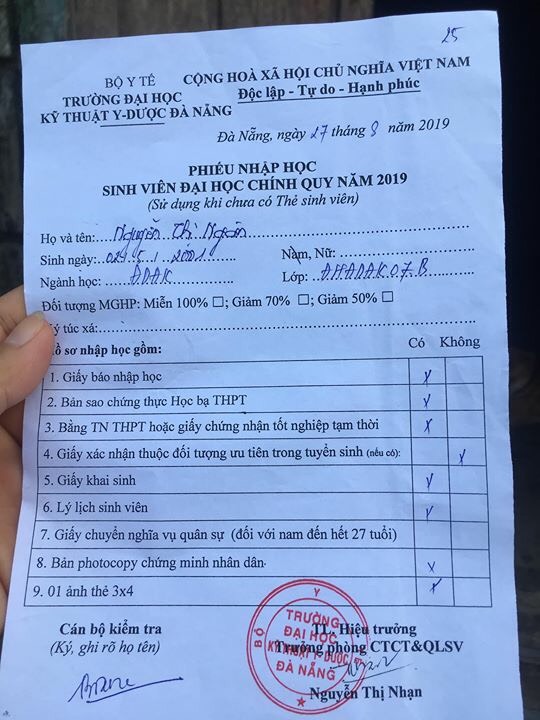 25
BỘ Y TẾ CỘNG HOÀ XÃ HỘI CHỦ NGHĨA VIỆT NAM
TRƯỜNG ĐẠI HỌC Độc lập - Tự do - Hạnh phúc
KỸ THUẬT Y-DƯỢC ĐÀ NẴNG
Đà Nẵng, ngày 27 tháng 8 năm 2019
PHIẾU NHẬP HỌC
SINH VIÊN ĐẠI HỌC CHÍNH QUY NĂM 2019
(Sử dụng khi chưa có Thẻ sinh viên)
Họ và tên: Nguyễn Thị Ngân
Sinh ngày: 02/5/2001 Nam, Nữ:
Ngành học: ĐDĐK Lớp: ĐHĐDĐK 07B
Đối tượng MGHP: Miễn 100% ☐; Giảm 70% ☐; Giảm 50% ☐
Ký túc xá:
Hồ sơ nhập học gồm: Có Không
1. Giấy báo nhập học x
2. Bản sao chứng thực Học bạ THPT x
3. Bằng TN THPT hoặc giấy chứng nhận tốt nghiệp tạm thời x
4. Giấy xác nhận thuộc đối tượng ưu tiên trong tuyển sinh (nếu có): x
5. Giấy khai sinh x
6. Lý lịch sinh viên x
7. Giấy chuyển nghĩa vụ quân sự (đối với nam đến hết 27 tuổi)
8. Bản photocopy chứng minh nhân dân x
9. 01 ảnh thẻ 3x4 x
Cán bộ kiểm tra TL. Hiệu trưởng
(Ký, ghi rõ họ tên) Trưởng phòng CTCT&QLSV
BỘ Y
TRƯỜNG
ĐẠI HỌC
KỸ THUẬT Y-DƯỢC
ĐÀ NẴNG
Nguyễn Thị Nhạn